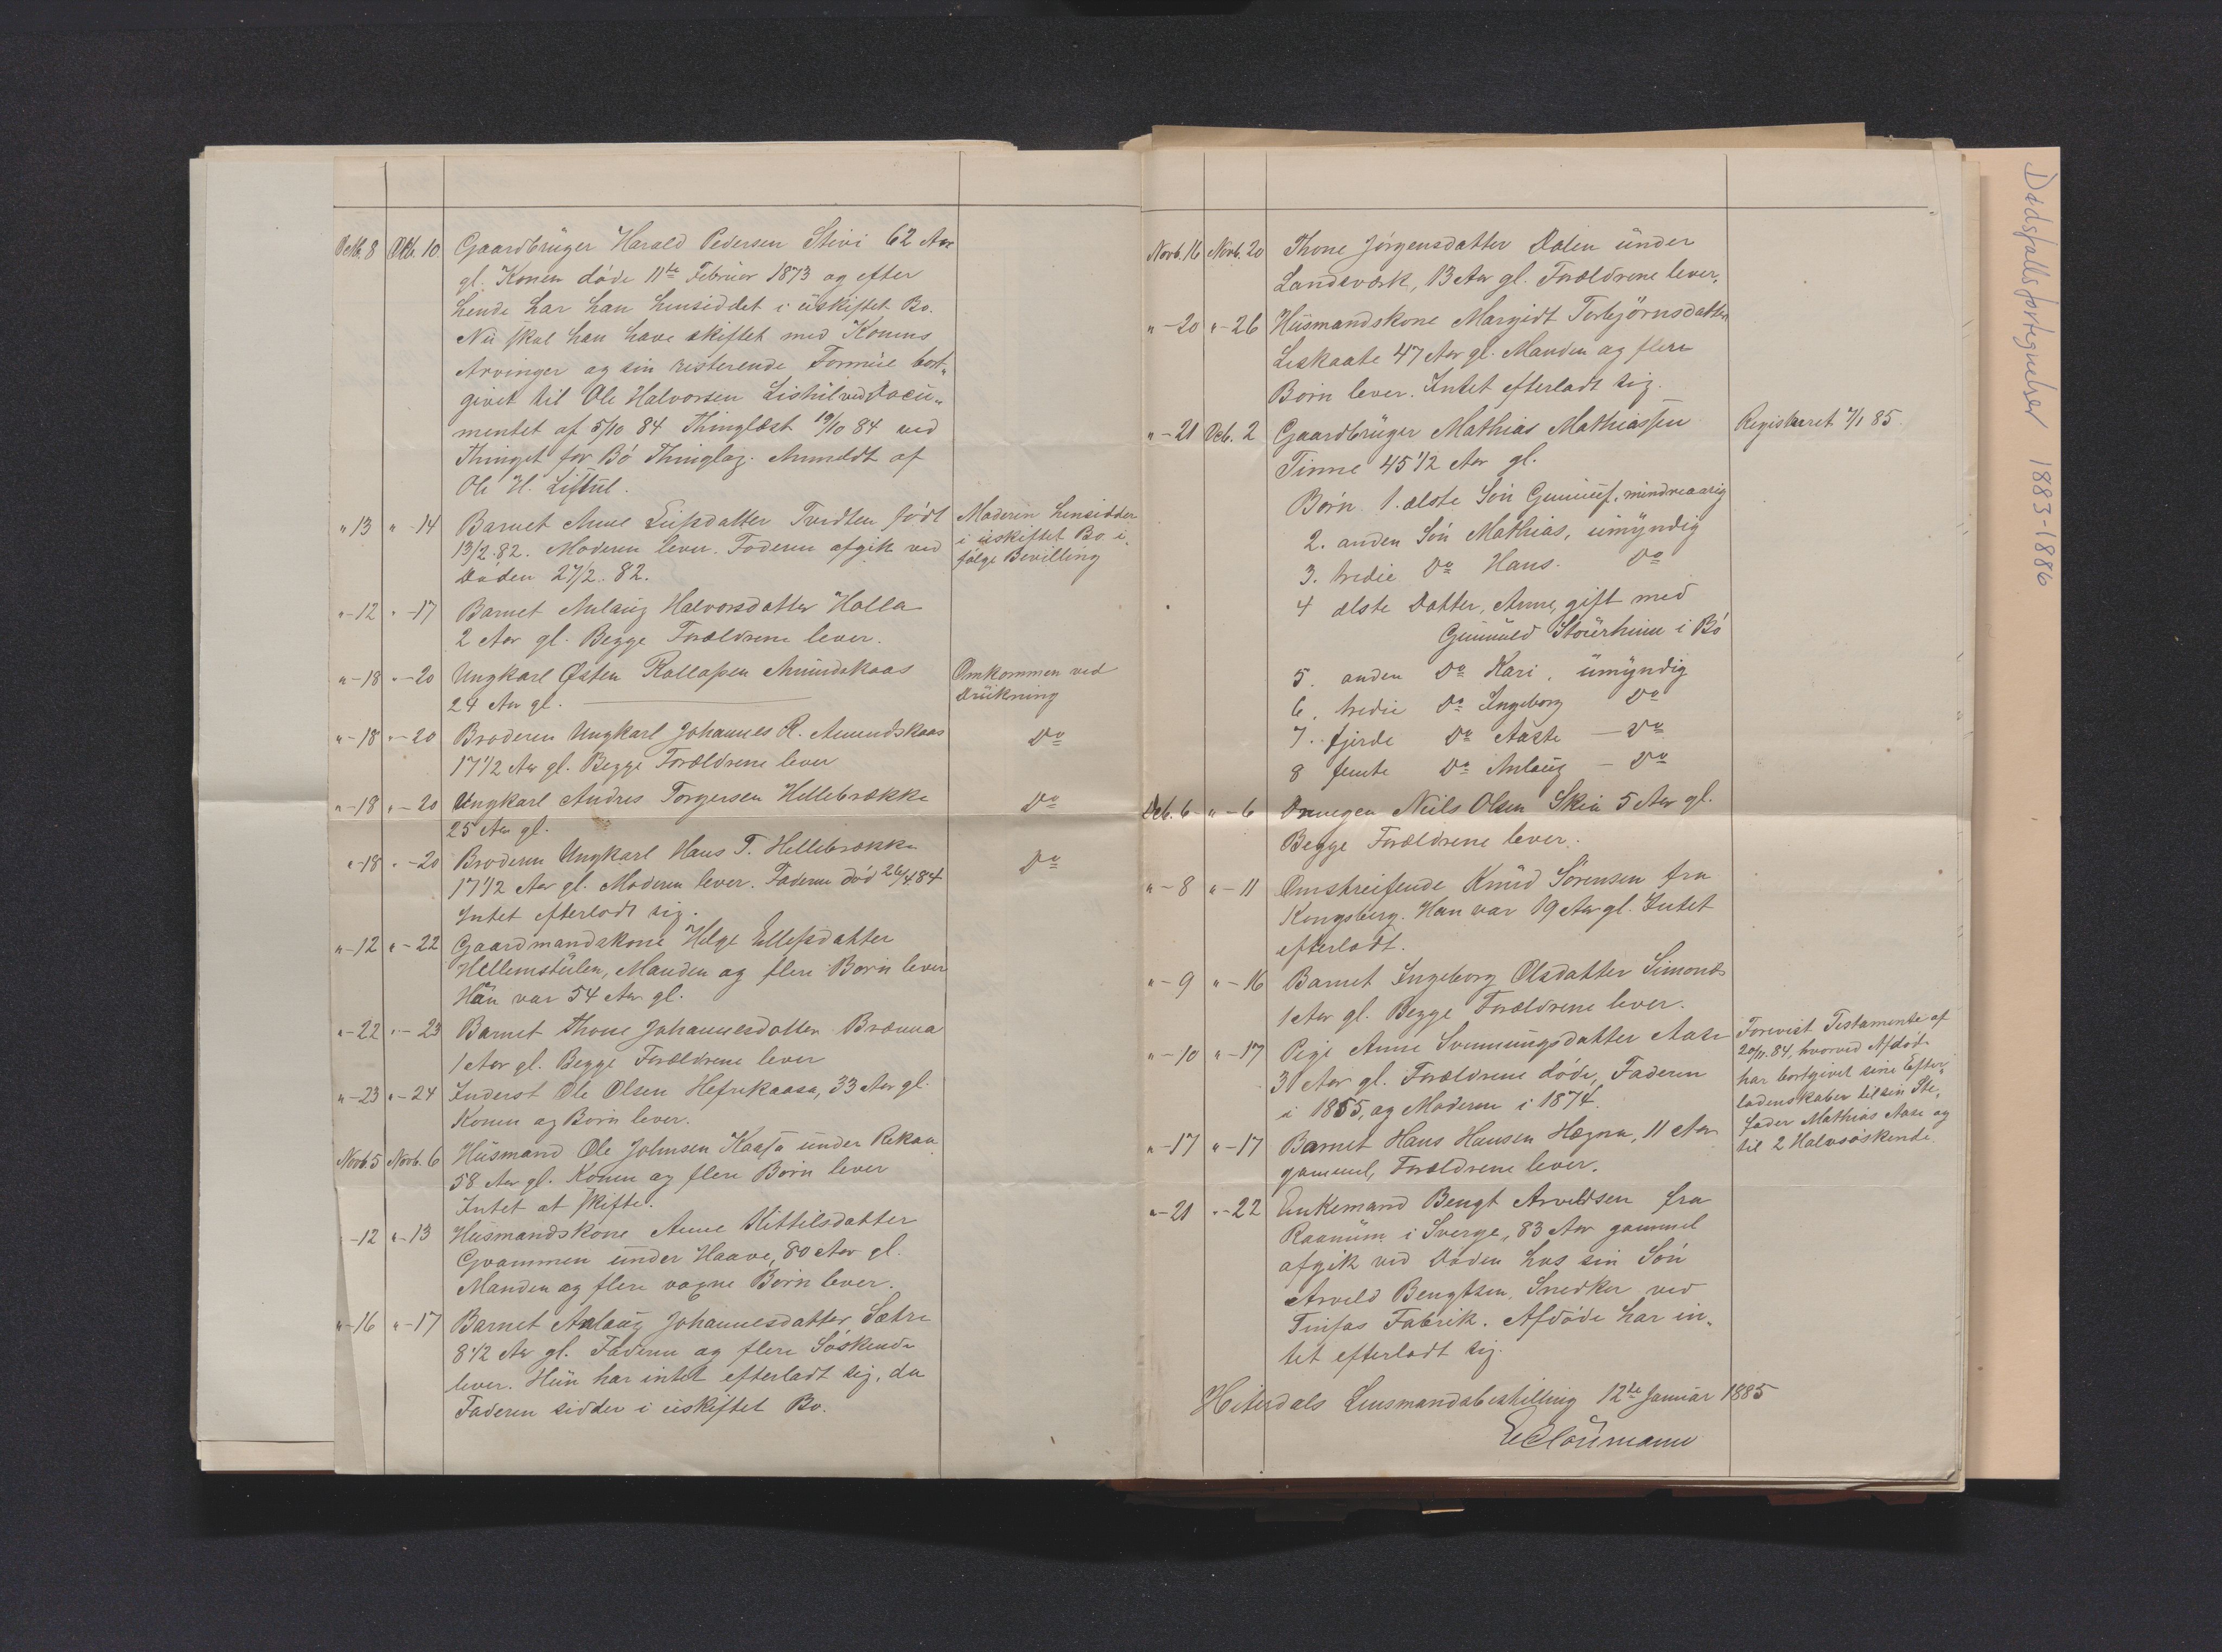 Octb. 8 Octb. 10. Gaardbruger Harald Pedersen Stivi 62 Aar
gl. Konen döde 11te Februar 1873 og efter
hende har han hensiddet i uskiftet Bo.
Nu skal han have skiftet med Konens
Arvinger og sin resterende Formue bort„
givet til Ole Halvorsen Lishul ved Docu„
mentet af 5/10 84 Thinglæst 10/10 84 ved
Thinget for Bö Thinglag. Anmeldt af
Ole H. Listul.
" 13 " - 14 Barnet Anne Leifsdatter Tvedten født Moderen hensidder
13/2.82. Moderen lever. Faderen afgik ved i uskiftet Bo i„
Döden 27/2.82. følge Bevilling
" - 12 " - 17 Barnet Anlaug Halvorsdatter Holla
2 Aar gl. Begge Forældrene lever.
" - 18 " - 20 Ungkarl Østen Rollefsen Amundskaas Omkommen ved
24 Aar gl. Drukning
" - 18 " - 20 Broderen Ungkarl Johannes R. Amundskaas Do
17 1/2 Aar gl. Begge Forældrene lever
" - 18 " - 20 Ungkarl Andres Torgersen Hellebrække Do
25 Aar gl.
" - 18 " - 20 Broderen Ungkarl Hans T. Hellebrække Do
17 1/2 Aar gl. Moderen lever. Faderen död 26/4.84
Intet efterladt sig.
" - 12 " - 22 Gaardmandskone Helge Ellefsdatter
Hellemstulen, Manden og flere Börn lever
Hun var 54 Aar gl.
" - 22 " - 23 Barnet Thone Johannesdatter Brænna
1 Aar gl. Begge Forældrene lever
" - 23 " - 24 Inderst Ole Olsen Hefrekaasa, 33 Aar gl.
Konen og Börn lever.
Novb. 5 Novb. 6 Husmand Ole Johnsen Kaasa under Rekaa
58 Aar gl. Konen og flere Börn lever
Intet at skifte.
- 12 " - 13 Husmandskone Anne Kittilsdatter
Gvammen under Haave, 80 Aar gl.
Manden og flere voxne Börn lever.
" - 16 " - 17 Barnet Anlaug Johannesdatter Sætre
8 1/2 Aar gl. Faderen og flere Söskende
lever. Hun har intet efterladt sig, da
Faderen sidder i uskiftet Bo.
Novb. 16 Novb. 20 Thone Jörgensdatter Dalen under
Landsværk, 13 Aar gl. Forældrene lever.
" - 20 " - 26 Husmandskone Margidt Torbjörnsdatter
Leskaate 47 Aar gl. Manden og flere
Börn lever. Intet efterladt sig.
" - 21 Deb. 2 Gaardbruger Mathias Mathiassen Registreret 7/1 85.
Tinne 45 1/2 Aar gl.
Börn. 1. ælste Sön Gunnuf, mindreaarig
2. anden Sön Mathias, umyndig
3. tredie Do Hans. Do
4 ælste Datter, Anne, gift med
Gunnuld Stourheim i Bö
5. anden Do Kari, umyndig
6. tredie Do Ingeborg Do
7. fjerde Do Aaste - Do
8 femte Do Anlaug - Do
Deb. 6 " - 6 Drengen Neils Olsen Skei 5 Aar gl.
Begge Forældrene lever.
" - 8 " - 11 Omstreifende Knud Sörensen fra
Kongsberg. Han var 19 Aar gl. Intet
efterladt.
" - 9 " - 16 Barnet Ingeborg Olsdatter Simones
1 Aar gl. Begge Forældrene lever.
" - 10 " - 17 Pige Anne Svennungsdatter Aase Forevist Testamente af
31 Aar gl. Forældrene döde, Faderen 20/11.84, hvorved Afdöde
i 1855, og Moderen i 1874. har bortgivet sine Efter„
ladenskaber til sin Ste„
fader Mathias Aase og
" - 17 " - 17 Barnet Hans Hansen Hægna, 11 Aar til 2 Halvsöskende.
gammel, Forældrene lever.
" - 21 " - 22 Enkemand Bengt Arveldsen fra
Raanum i Sverge, 83 Aar gammel
afgik ved Döden hos sin Sön
Arveld Bengtsen, Snedker ved
Tinfos Fabrik. Afdöde har in„
tet efterladt sig.
Hiterdals Lensmandsbestilling 12te Januar 1885
E Cloumann
Dødsfallsfortegnelser 1883-1886